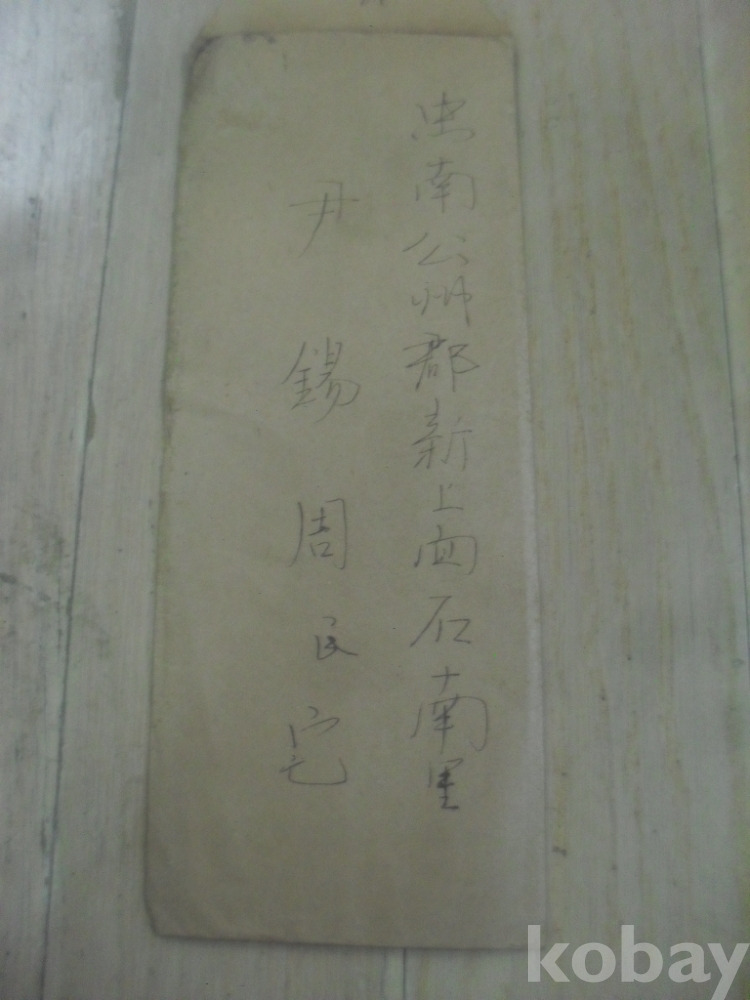 忠南公州郡新上面石南里
尹錫周氏宅
kobay